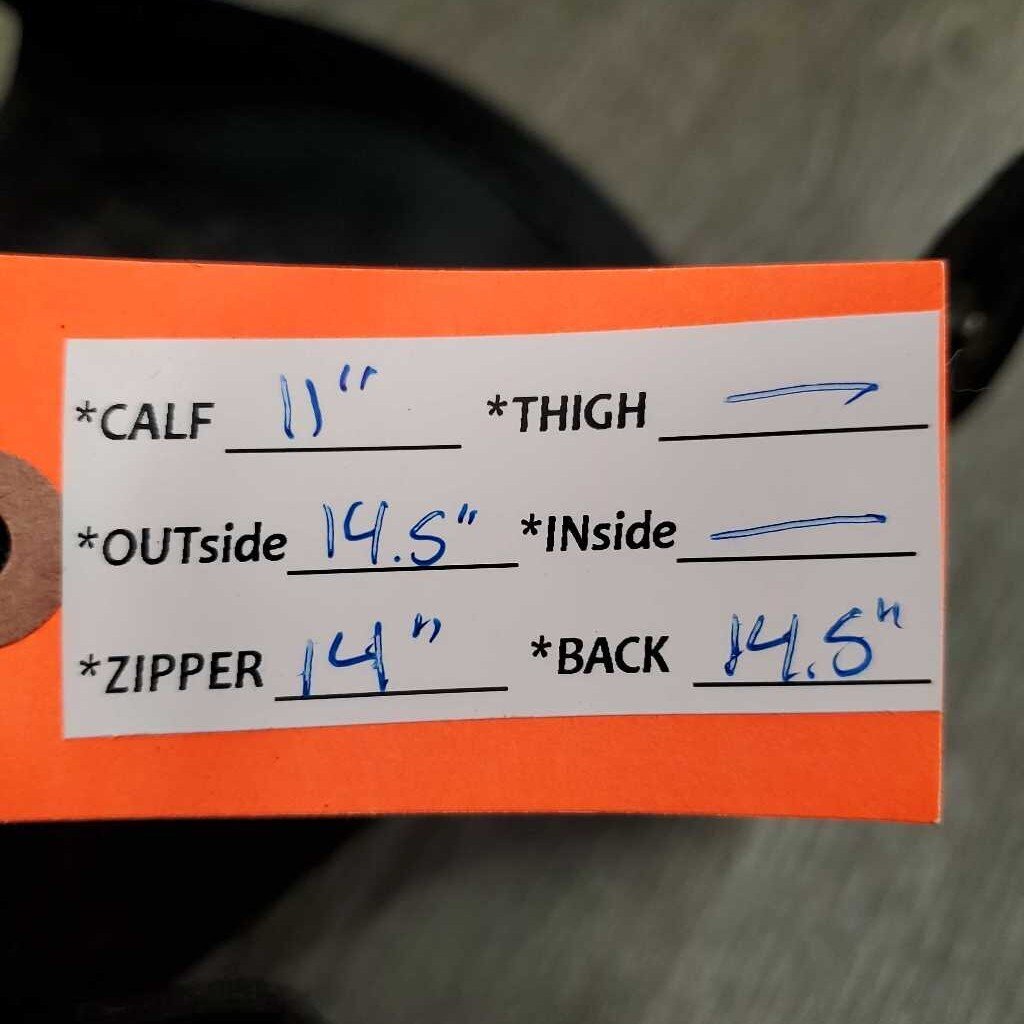 *CALF 11" *THIGH —
*OUTside 14.5" *INside —
*ZIPPER 14" *BACK 14.5"